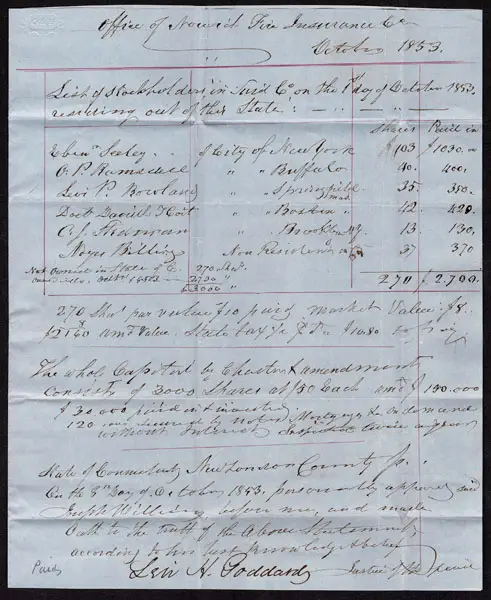 Office of Norwich Fire Insurance Co
October 1853.
List of Stockholders in Said Co on the 1st day of October 1853
residing out of this State
Shares Paid in
Eben Seeley . . of City of New York 103 $1030.00
O. P. Ramsdell " " Buffalo 40. 400,
Levi P. Rowland " " Springfield Mass 35. 350.
Doct Daniel Hoit " " Boston 42. 420.
" " Brooklyn NY. 13. 130,
Noyes Billings Non Resident 37 370
Not owned in State of C. 270 Shs.
2730 "
3000
270 $2.700.
270 Shs par value $10 paid market Value $8.
$2160 amt Value. State tax
The whole Capital by Charter & amendment
Consists of 3000 Shares at $50 Each amt $150.000
$30000 paid in & invested
120 secured by Notes Mortgages & on demand
without Interest
State of Connecticut New London County Ss.
On the 8th Day of October, 1853, personally appeared said
Joseph Williams before me, and made
Oath to the truth of the above Statement
according to his best knowledge & belief
Levi H. Goddard, Justice of the Peace
Paid